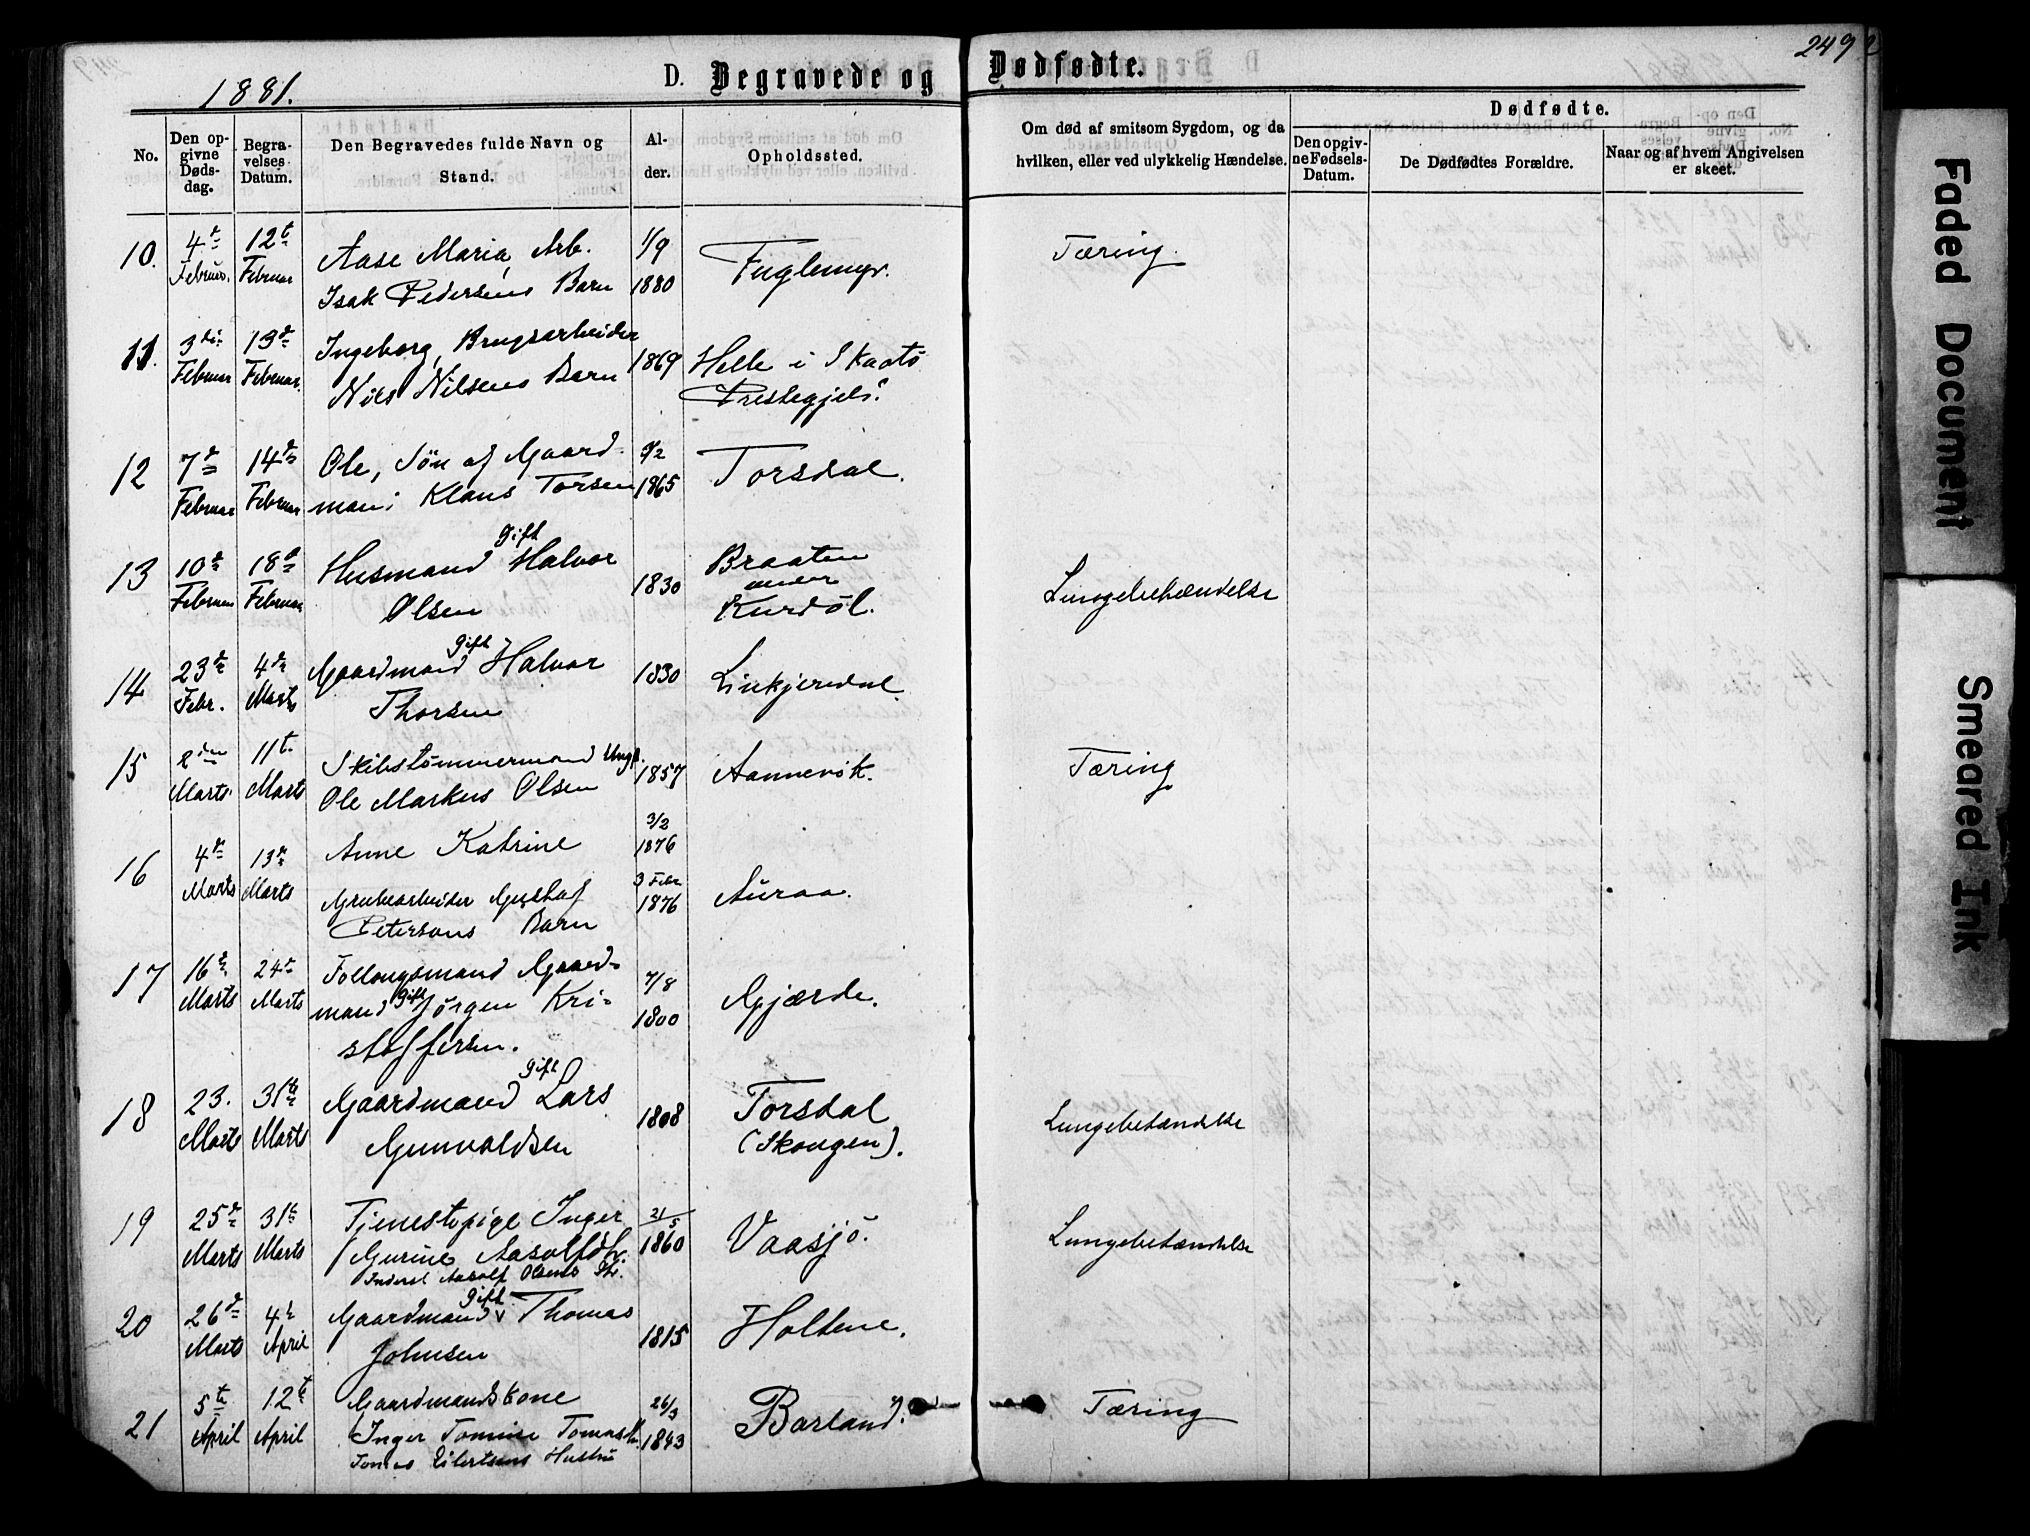 1881.
D. Begravede og Dødfødte.
249
No.
Den opgivne Dødsdag.
Begravelses Datum.
Den Begravedes fulde Navn og Stand.
Alder.
Opholdssted.
Om død af smitsom Sygdom, og da hvilken, eller ved ulykkelig Hændelse.
Dødfødte.
Den opgivne Fødsels-Datum.
De Dødfødtes Forældre.
Naar og af hvem Angivelsen er skeet.
10. 4de Februar. 12te Februar Aase Maria, Arb. Isak Pedersens Barn 1/9 1880 Fuglemyr. Tæring.
11. 3die Februar 13de Februar. Ingeborg, Brugsarbeider Nils Nilsens Barn 1869 Helle i Skaatø Prestegjeld.
12 7de Februar 14de Februar Ole, Søn af Gaardmand Klaus Torsen 1865 Torsdal.
13 10de Februar 18de Februar Husmand Gift Halvor Olsen 1830 Braaten under Kurdøl. Lungebetændelse
14 23de Febr. 4de Marts Gaardmand Gift Halvor Thorsen 1830
15 2den Marts. 11te Marts Skibstømmermand Ungk. Ole Markus Olsen 1857 Aannevik. Tæring
16 4de Marts 13de Marts Anne Katrine Grubearbeider Gustaf Petersons Barn 3/2 1876 3 Febr 1876 Auraa.
17 16de Marts 24de Marts Follougsmand Gaardmand Gift Jørgen Kristoffersen. 7/8 1800 Gjærde.
18 23. Marts 31te Marts Gaardmand Gift Lars Gunvaldsen 1808 Torsdal (Skougen). Lungebetændelse
19 25de Marts 31te Marts Tjenestepige Inger Gurine Aasolfsdtr. Inderst Aasolf Olsens Dtr. 21/5 1860 Vaasjø. Lungebetændelse
20 26de Marts 4de April Gaardmand Gift Thomas Johnsen 1815 Holtene.
21 5te April 12te April Gaardmandskone Inger Tomine Tomasdtr. Eilertsens Hustru 26/3 1843 Barland. Tæring
Faded Document
Smeared Ink